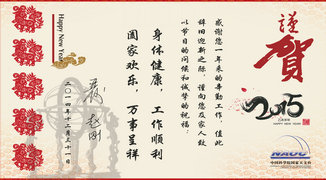 謹
賀
2015
HAPPY NEW YEAR
NAOC
中国科学院国家天文台
感谢您一年来的辛勤工作，值此
辞旧迎新之际，谨向您及家人致
以节日的问候和诚挚的祝福：
身体健康，工作顺利
阖家欢乐，万事呈祥
二〇一四年十二月三十一日
Happy New Year